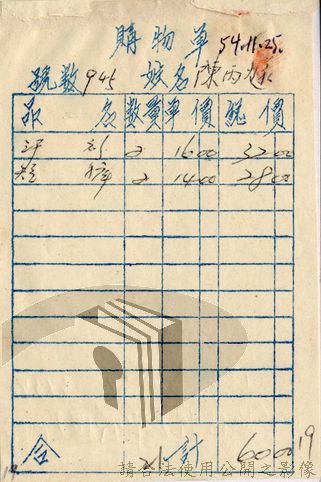 購物單 54.11.25.
號數 945 姓名 陳丙
品名 數量 單價 總價
2 1600 3200
2 1400 2800
合計 6000
19
請合法使用公開之影像